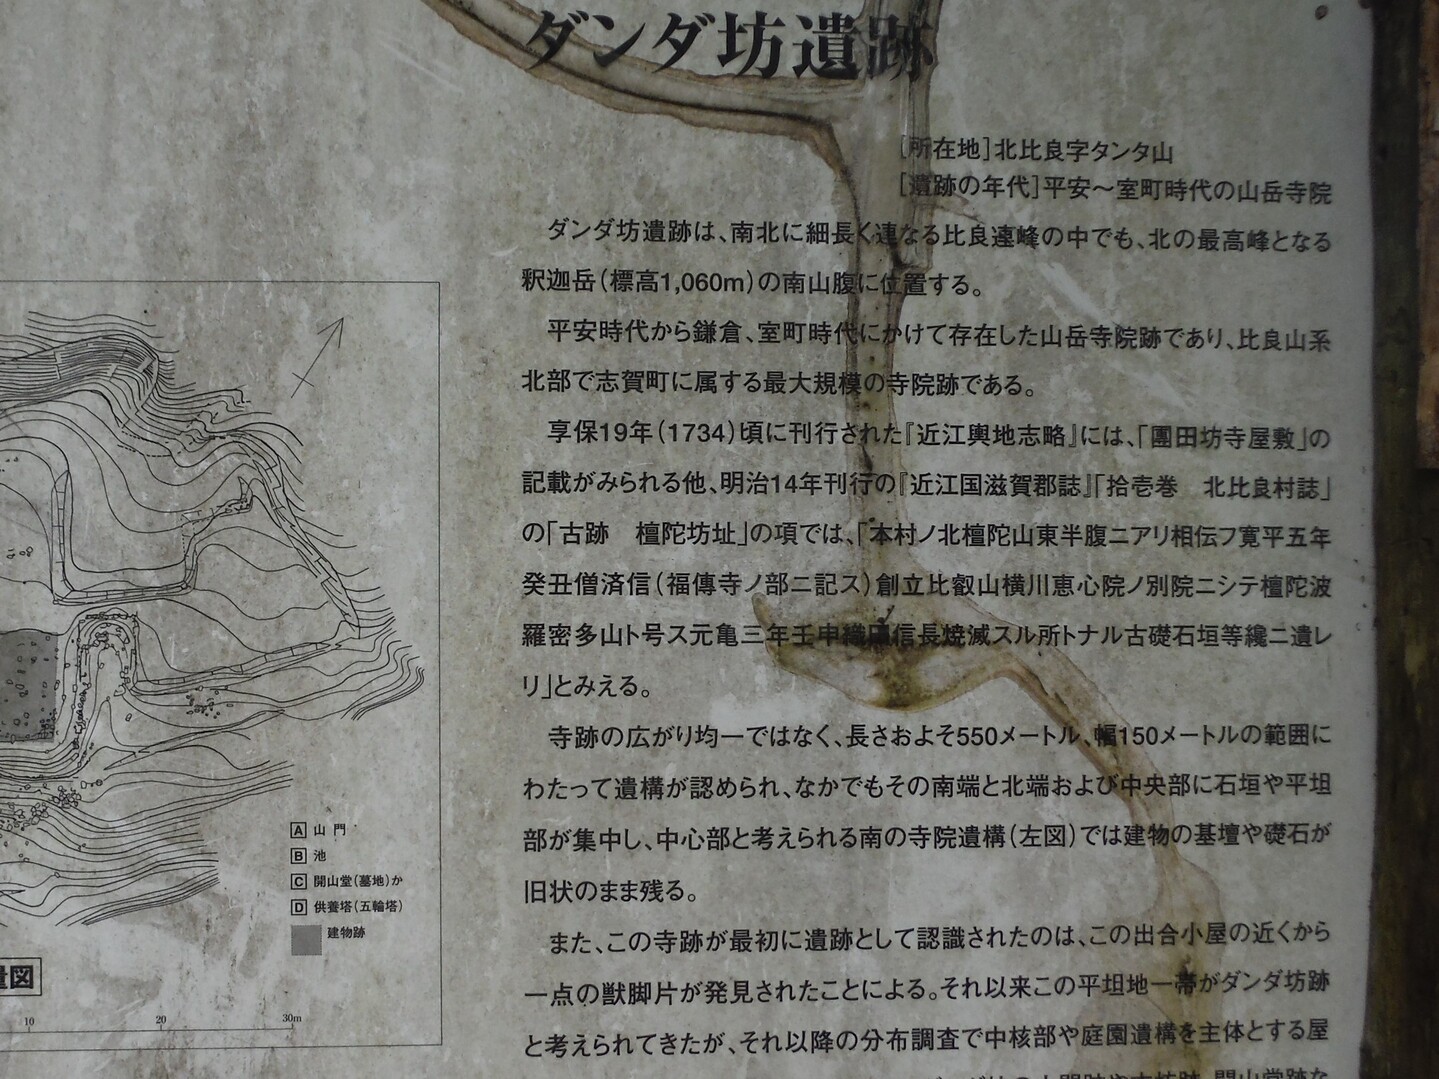 ダンダ坊遺跡
[所在地]北比良字タンタ山
[遺跡の年代]平安〜室町時代の山岳寺院
ダンダ坊遺跡は、南北に細長く連なる比良連峰の中でも、北の最高峰となる
釈迦岳(標高1,060m)の南山腹に位置する。
平安時代から鎌倉、室町時代にかけて存在した山岳寺院跡であり、比良山系
北部で志賀町に属する最大規模の寺院跡である。
享保19年(1734)頃に刊行された『近江輿地志略』には、「團田坊寺屋敷」の
記載がみられる他、明治14年刊行の『近江国滋賀郡誌』「拾壱巻　北比良村誌」
の「古跡　檀陀坊址」の項では、「本村ノ北檀陀山東半腹ニアリ相伝フ寛平五年
癸丑僧済信(福傳寺ノ部ニ記ス)創立比叡山横川恵心院ノ別院ニシテ檀陀波
羅密多山ト号ス元亀三年壬申織田信長焼滅スル所トナル古礎石垣等纔ニ遺レ
リ」とみえる。
寺跡の広がり均一ではなく、長さおよそ550メートル、幅150メートルの範囲に
わたって遺構が認められ、なかでもその南端と北端および中央部に石垣や平坦
部が集中し、中心部と考えられる南の寺院遺構(左図)では建物の基壇や礎石が
旧状のまま残る。
また、この寺跡が最初に遺跡として認識されたのは、この出合小屋の近くから
一点の獣脚片が発見されたことによる。それ以来この平坦地一帯がダンダ坊跡
と考えられてきたが、それ以降の分布調査で中核部や庭園遺構を主体とする屋
A 山門
B 池
C 開山堂(墓地)か
D 供養塔(五輪塔)
建物跡
量図
10 20 30m